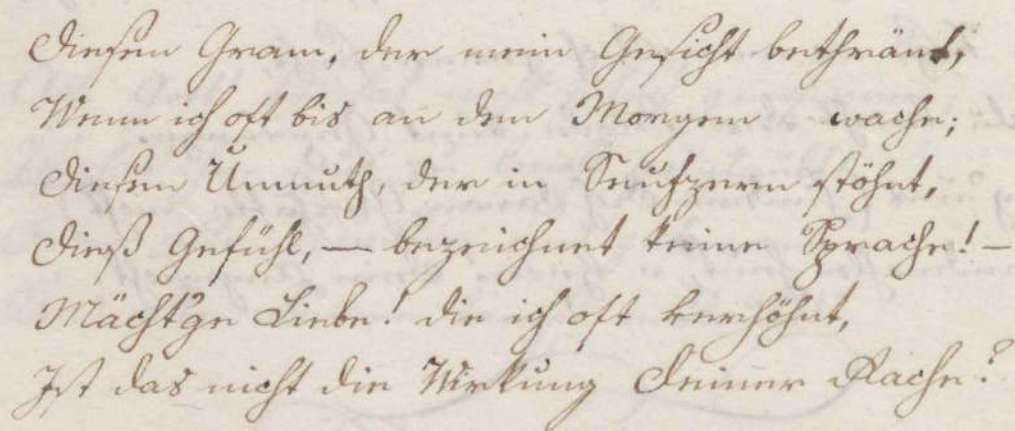 Diesen Gram, der mein Gesicht bethränt,
Wenn ich oft bis an den Morgen wache;
Diesen Unmuth, der in Seufzern stöhnt,
Dieß Gefühl, — bezeichnet keine Sprache! —
Mächt'ge Liebe! die ich oft verhöhnt,
Ist das nicht die Wirkung Deiner Rache?